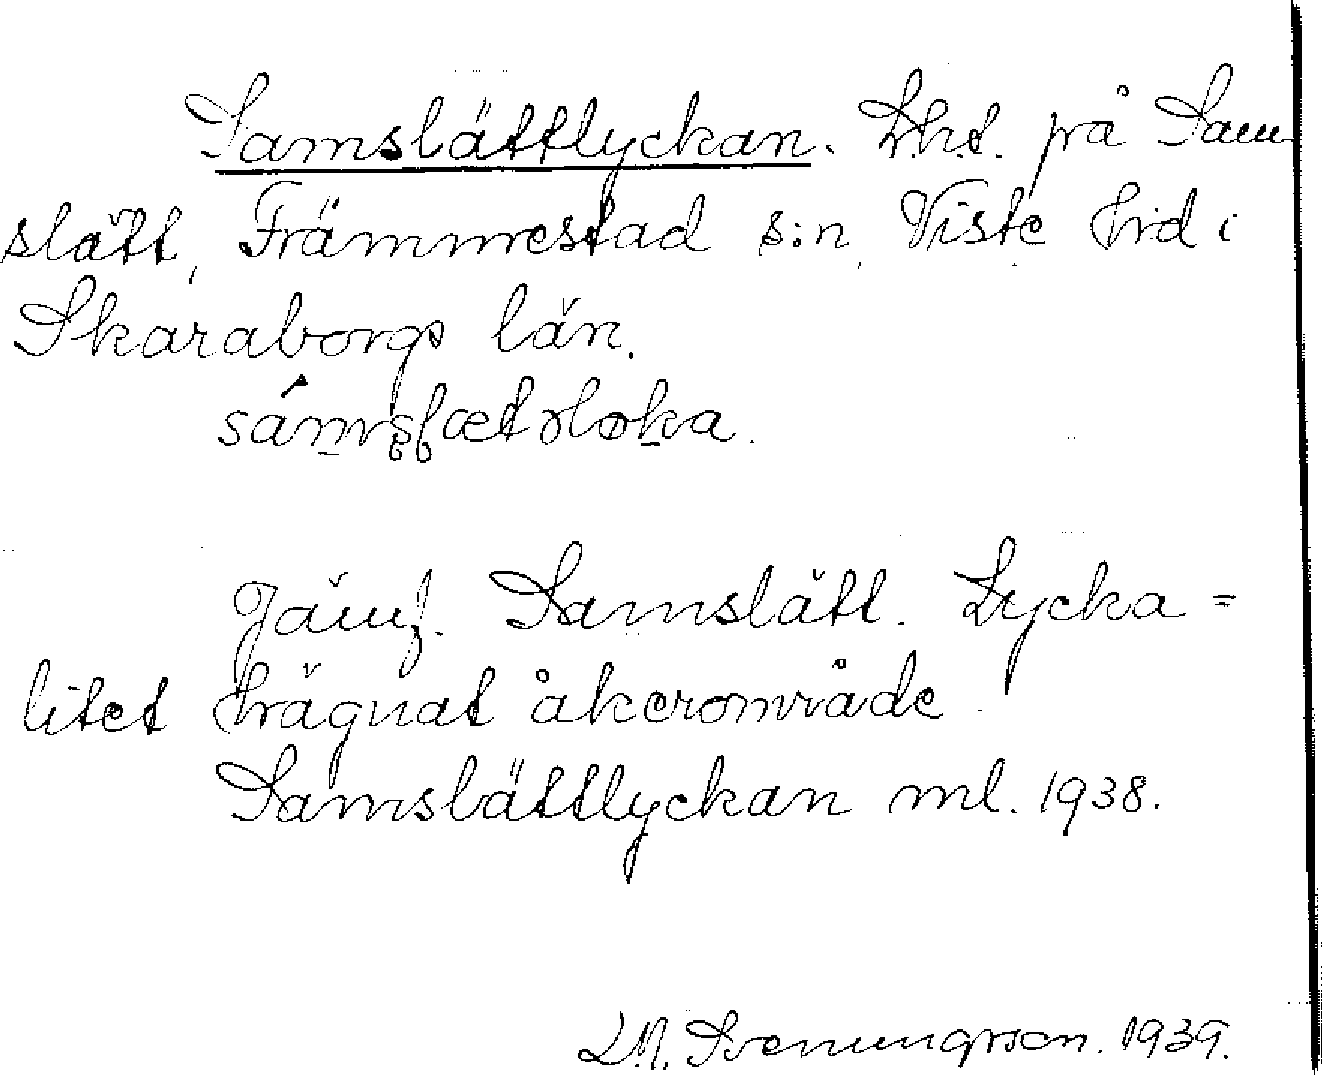 Samslättlyckan. Lht. på Sam
slätt, Främmestad s:n, Viste hrd i
Skaraborgs län.

Jämf. Samslätt. Lycka =
litet hägnat åkerområde.
Samslättlyckan ml. 1938.
L.N. Svenungsson. 1939.